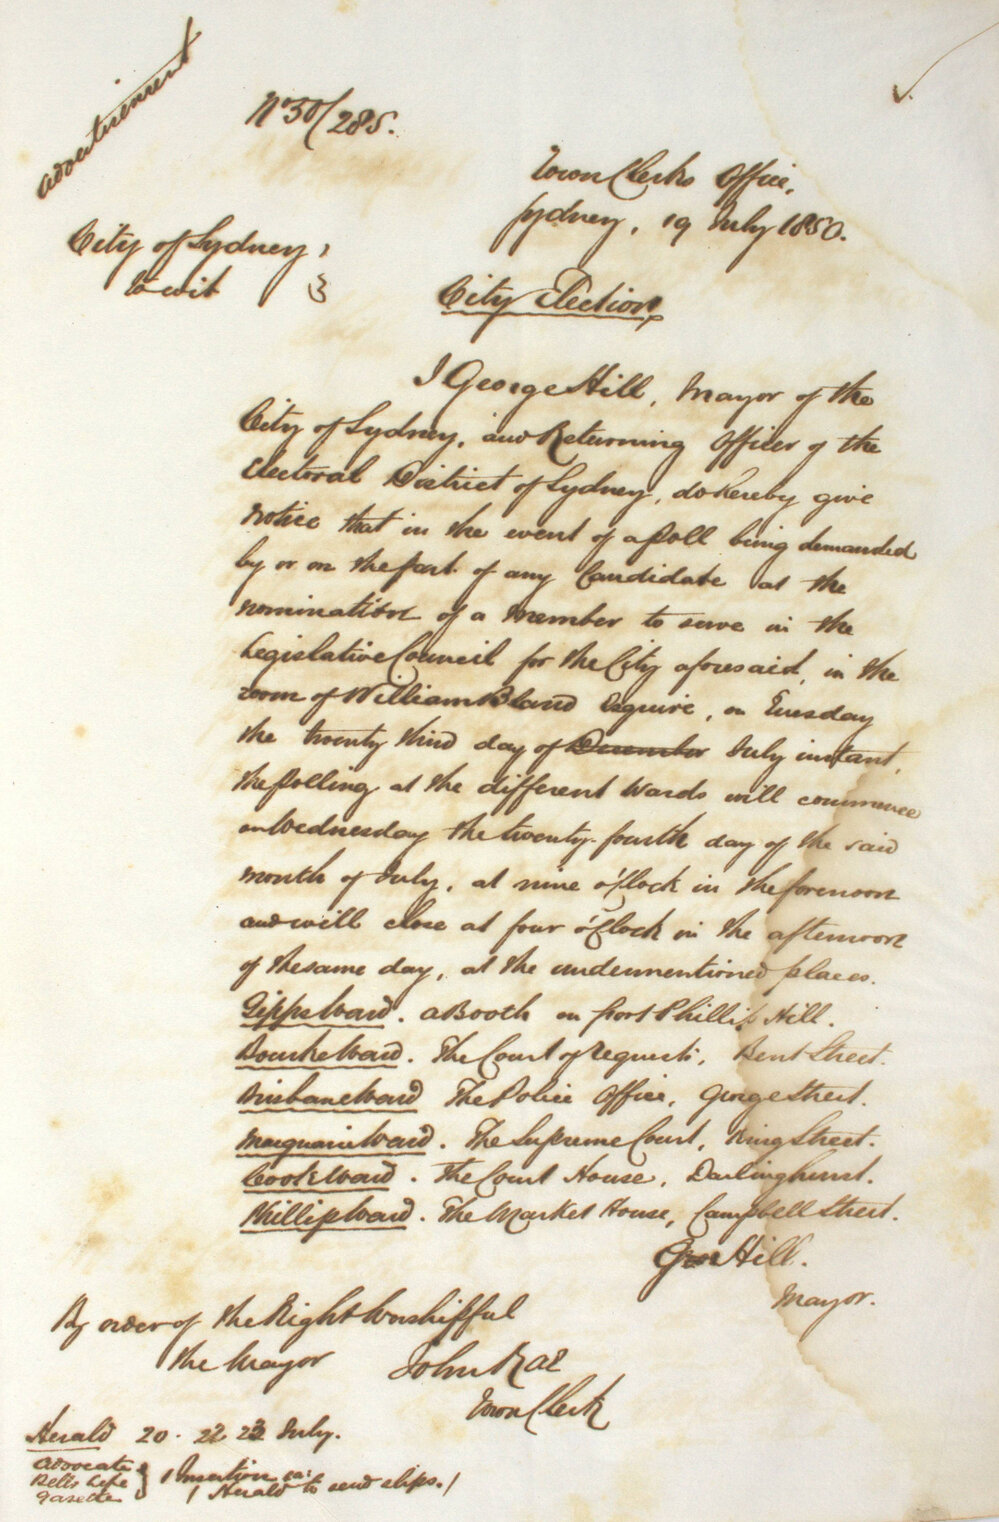 Advertisement
No 50/285.
Town Clerks Office,
Sydney, 19 July 1850.
City of Sydney,
to wit
City Election,
I George Hill, Mayor of the
City of Sydney, and Returning Officer of the
Electoral District of Sydney, do hereby give
notice that in the event of a Poll being demanded
by or on the part of any Candidate at the
nomination of a Member to serve in the
Legislative Council for the City aforesaid, in the
room of William Bland Esquire, on Tuesday
the twenty third day of December July instant,
the Polling at the different Wards will commence
on Wednesday the twenty-fourth day of the said
month of July, at nine o'Clock in the forenoon
and will close at four o'Clock in the afternoon
of the same day, at the undermentioned places.
Gipps Ward. a Booth on Fort Phillip Hill.
Bourke Ward. The Court of Requests, Bent Street.
Brisbane Ward The Police Office, George Street.
Macquarie Ward. The Supreme Court, King Street.
Cook Ward. The Court House, Darlinghurst.
Phillip Ward. The Market House, Campbell Street.
Geo Hill.
Mayor.
By order of the Right Worshipful
the Mayor
John Rae
Town Clerk
Herald 20. 22 23 July.
Advocate
Bells Life
Gazette
1 Insertion ea:
1 Herald to send slips. /